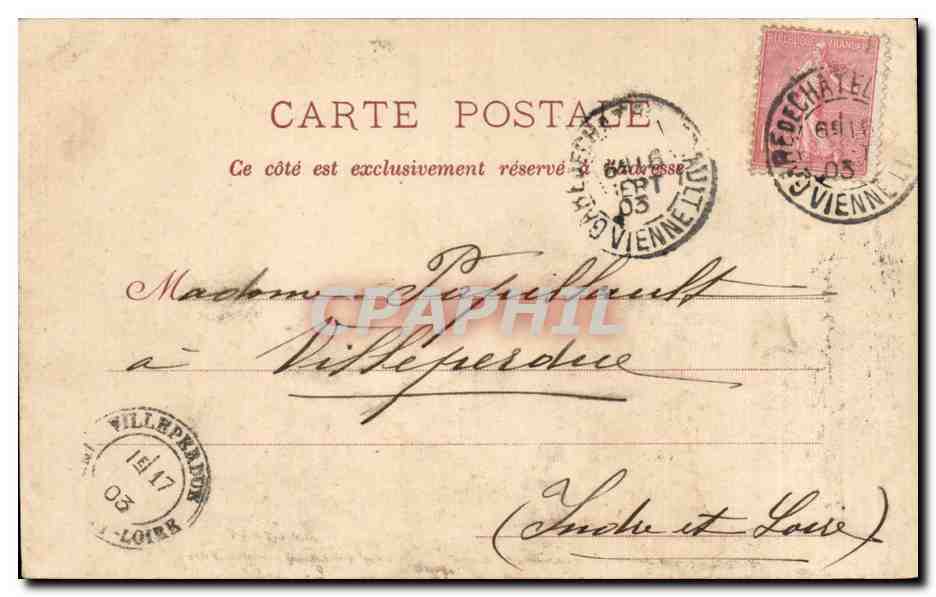 REPUBLIQUE FRANÇAISE
CARTE POSTALE
Ce côté est exclusivement réservé à l'adresse
GARE DE CHATELLERAULT
SEPT
03
VIENNE
GARE DE CHATEL
03
VIENNE
Madame Papillault
CPAPHIL
à Villeperdue
VILLEPERDUE
17
03
LOIRE
(Indre et Loire)